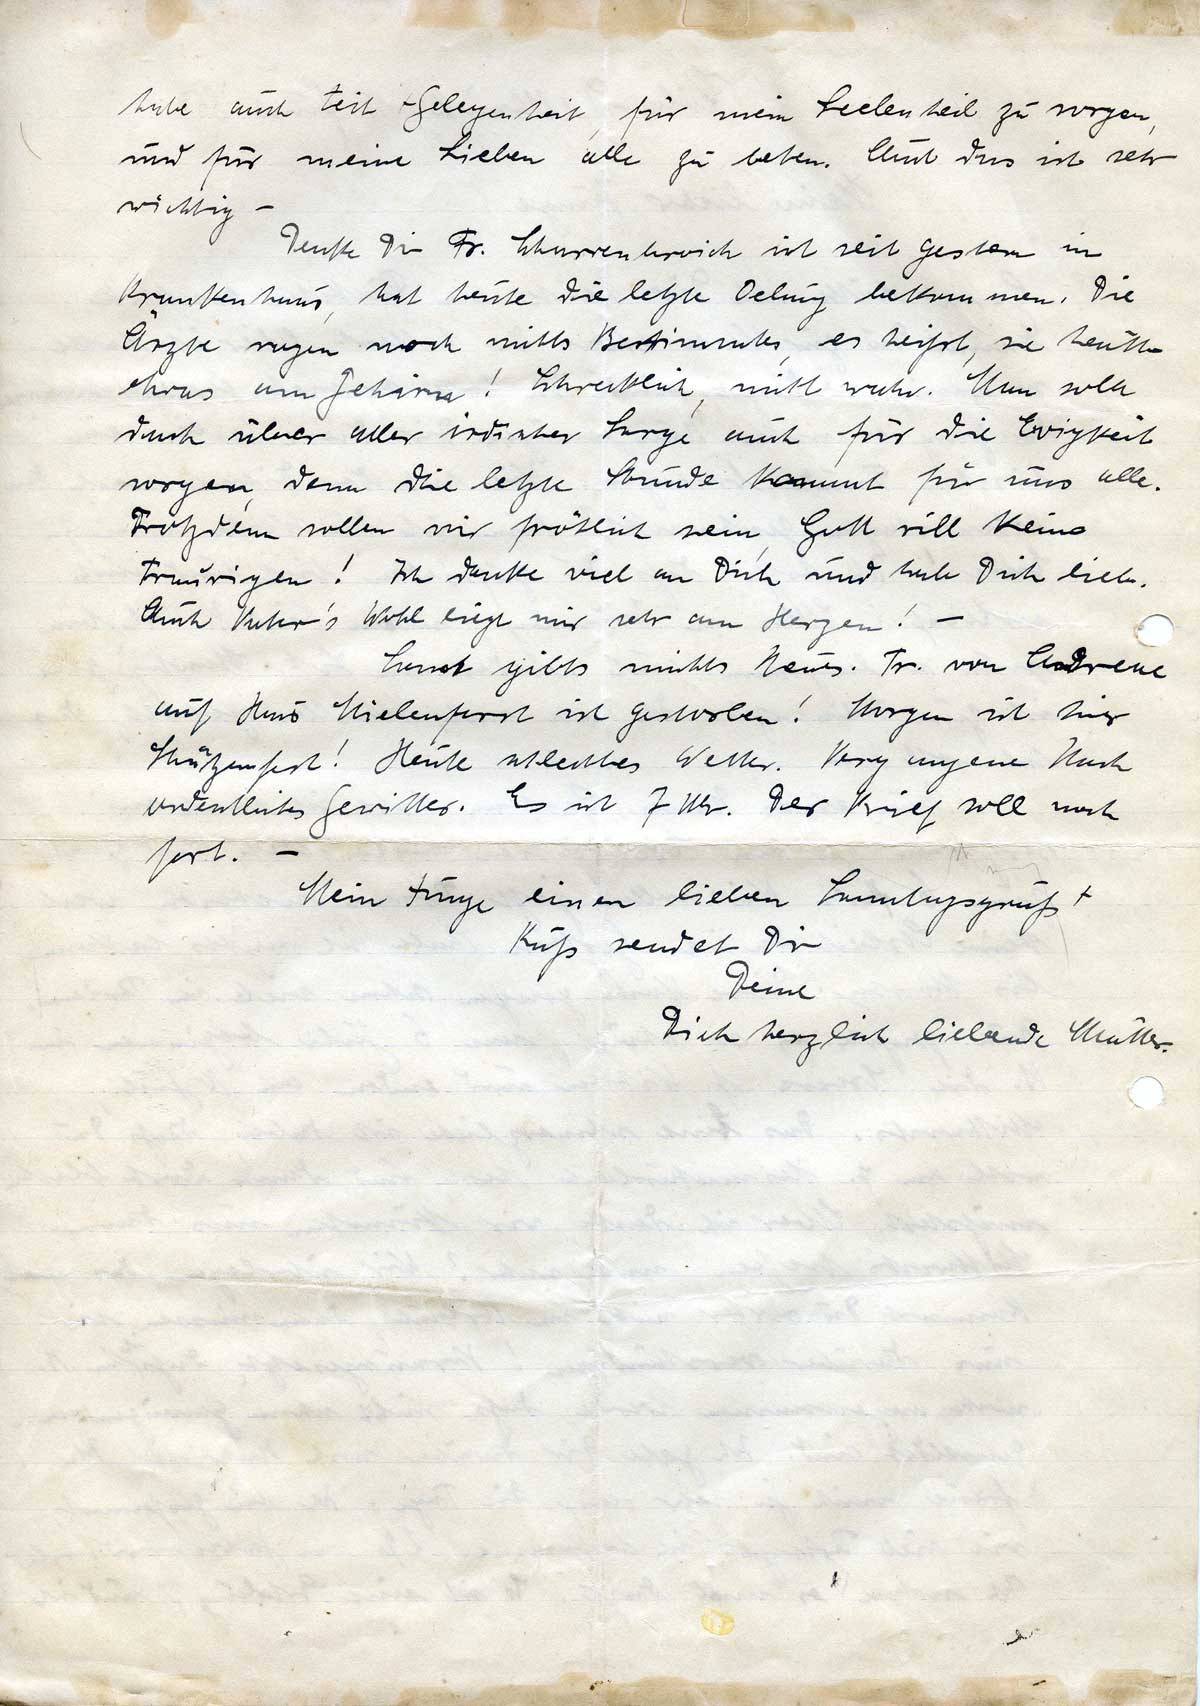 habe auch Zeit + Gelegenheit, für mein Seelenheil zu sorgen,
und für meine Lieben alle zu beten. Auch das ist sehr
wichtig –
Denke Dir Fr. Scharrenbroich ist seit gestern im
Krankenhaus, hat heute die letzte Oelung bekommen. Die
Ärzte sagen noch nichts Bestimmtes, es heißt, sie hätte
etwas am Gehirn! Schrecklich, nicht wahr. Man sollte
doch über aller irdischer Sorge auch für die Ewigkeit
sorgen, denn die letzte Stunde kommt für uns alle.
Trotzdem sollen wir fröhlich sein, Gott will keine
Traurigen! Ich denke viel an Dich und habe Dich lieb.
Auch Vater's Wohl liegt mir sehr am Herzen! –
Sonst gibts nichts Neues. Fr. von Andreae
auf Haus Mielenforst ist gestorben! Morgen ist hier
Schützenfest! Heute schlechtes Wetter. Vergangene Nach
ordentliches Gewitter. Es ist 7 Uhr. Der Brief soll noch
fort. –
Mein Junge einen lieben Sonntagsgruß +
Kuß sendet Dir
Deine
Dich herzlich liebende Mutter.